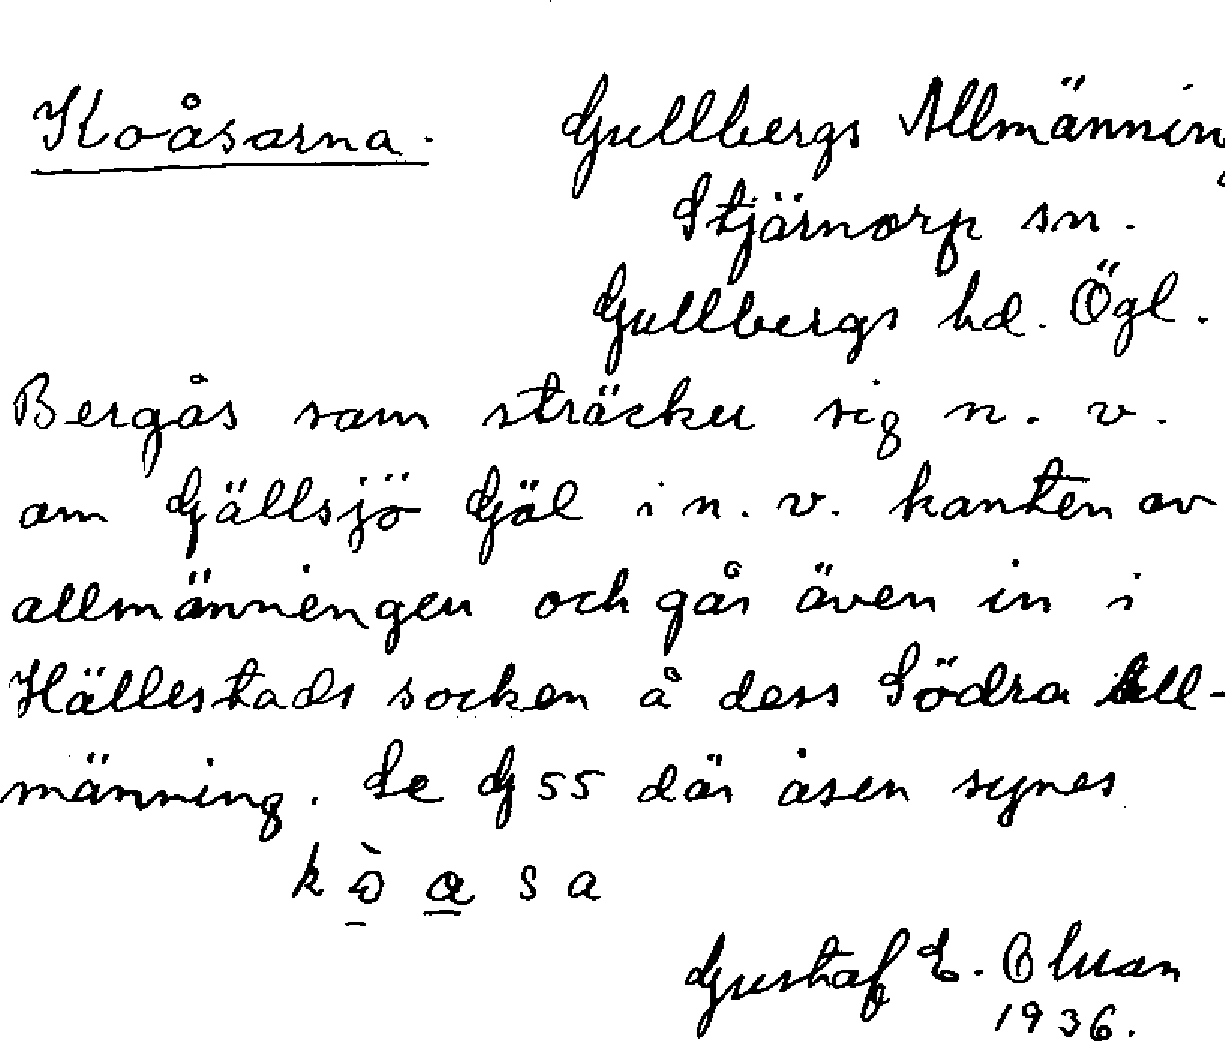 Koåsarna. Gullbergs Allmänning
Stjärnorp sn.
Gullbergs hd. Ögl.
Bergås som sträcker sig n. v.
om Gällsjö Göl i n. v. kanten av
allmänningen och går även in i
Hällestads socken å dess Södra All-
männing. Se G 55 där åsen synes
Gustaf E.
1936.